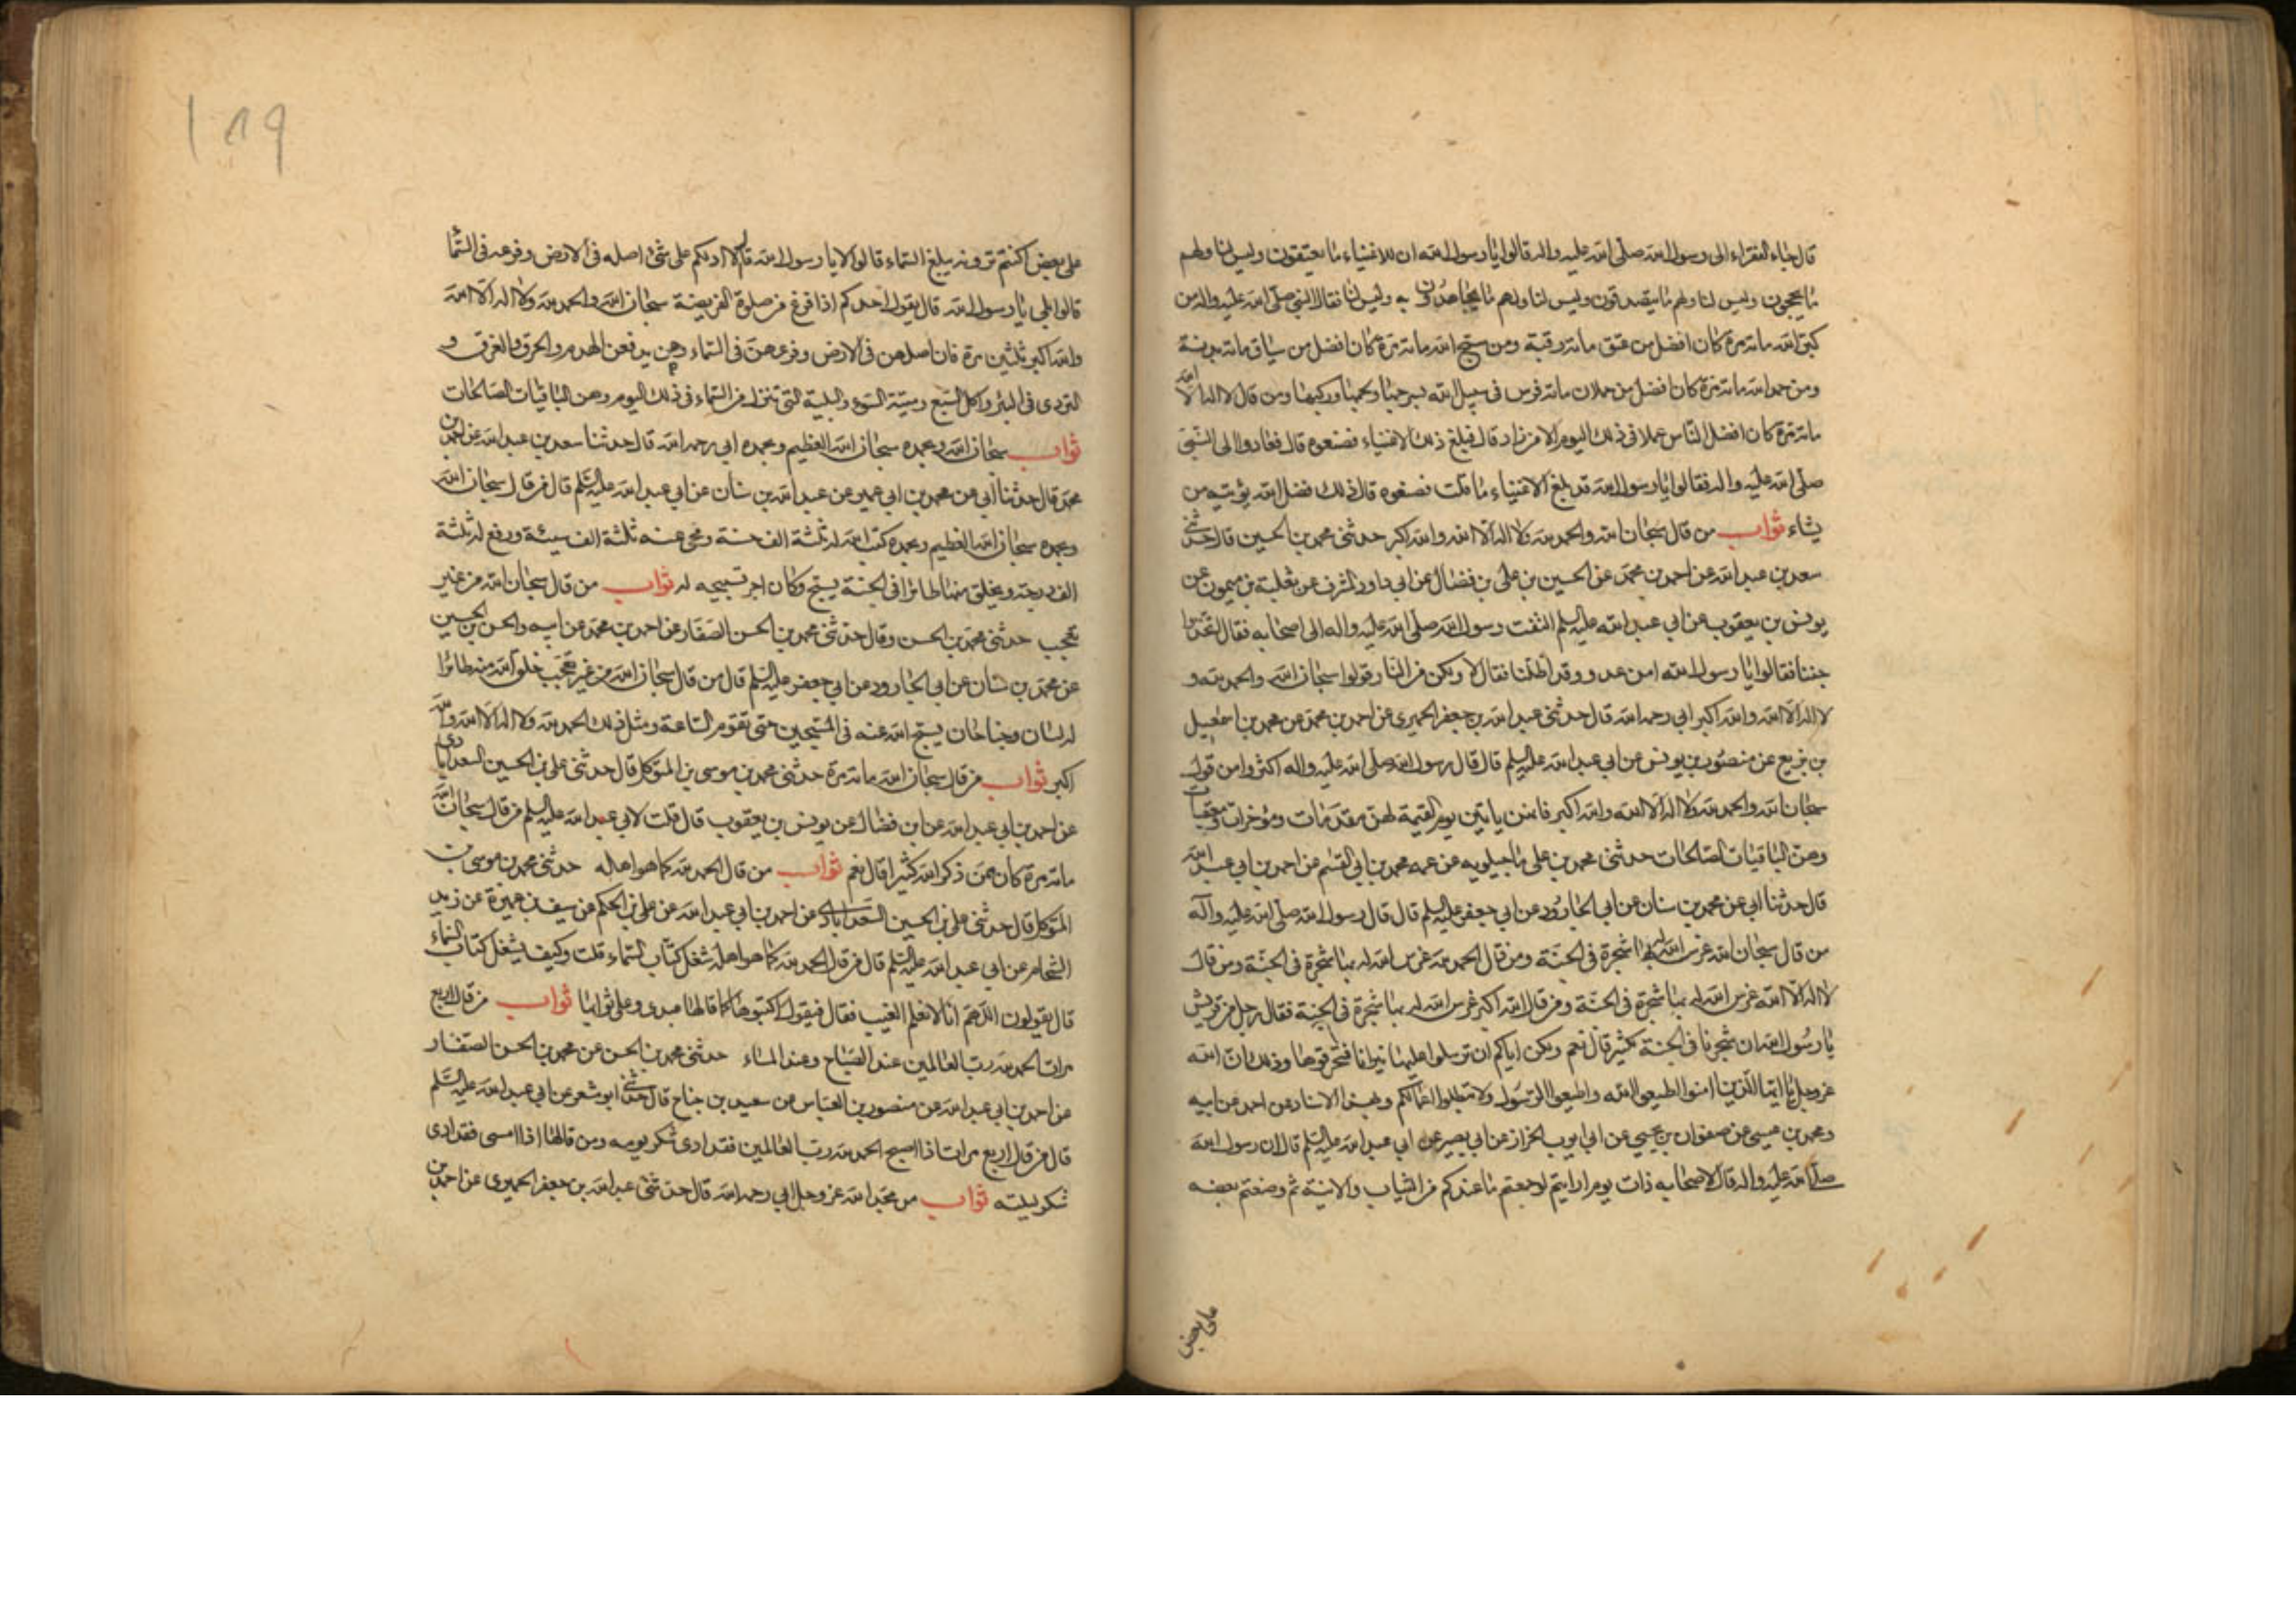 قال جاء الفقراء الى رسول الله صلى الله عليه واله قالوا يا رسول الله ان للاغنياء ما يعتقون وليس لنا ولهم
ما يحجون وليس لنا ولهم ما يتصدقون وليس لنا ولهم ما يجاهدون به وليس لنا فقال النبي صلى الله عليه واله من
كبر الله مائة مرة كان افضل من عتق مائة رقبة ومن سبح الله مائة مرة كان افضل من سياق مائة بدنة
ومن حمد الله مائة مرة كان افضل من حملان مائة فرس في سبيل الله بسرجها ولجمها وركبها ومن قال لا اله الا الله
مائة مرة كان افضل الناس عملا في ذلك اليوم الا من زاد قال فبلغ ذلك الاغنياء فصنعوه قال فعادوا الى النبي
صلى الله عليه واله فقالوا يا رسول الله قد بلغ الاغنياء ما قلت فصنعوه قال ذلك فضل الله يؤتيه من
يشاء ثواب من قال سبحان الله والحمد لله ولا اله الا الله والله اكبر حدثني محمد بن الحسين قال حدثني
سعد بن عبد الله عن احمد بن محمد عن الحسين بن علي بن فضال عن ابي داود المشرق عن ثعلبة بن ميمون عن
يونس بن يعقوب عن ابي عبد الله عليه السلم التفت رسول الله صلى الله عليه واله الى اصحابه فقال اتخذوا
جننا فقالوا يا رسول الله امن عدو وقد اظلنا فقال لا ولكن من النار قولوا سبحان الله والحمد لله و
لا اله الا الله والله اكبر ابي رحمه الله قال حدثني عبد الله بن جعفر الحميري عن احمد بن محمد عن محمد بن اسمعيل
بن بزيع عن منصور بن يونس عن ابي عبد الله عليه السلم قال قال رسول الله صلى الله عليه واله اكثروا من قول
سبحان الله والحمد لله ولا اله الا الله والله اكبر فانهن ياتين يوم القيمة لهن مقدمات ومؤخرات ومعقبات
وهن الباقيات الصالحات حدثني محمد بن علي ماجيلويه عن عمه محمد بن ابي القسم عن احمد بن ابي عبد الله
قال حدثنا ابي عن محمد بن سنان عن ابي الجارود عن ابي جعفر عليه السلم قال قال رسول الله صلى الله عليه وآله
من قال سبحان الله غرس الله له بها شجرة في الجنة ومن قال الحمد لله غرس الله له بها شجرة في الجنة ومن قال
لا اله الا الله غرس الله له بها شجرة في الجنة ومن قال الله اكبر غرس الله له بها شجرة في الجنة فقال رجل من قريش
يا رسول الله ان شجرنا في الجنة لكثير قال نعم ولكن اياكم ان ترسلوا عليها نيرانا فتحرقوها وذلك ان الله
عز وجل يا ايها الذين امنوا اطيعوا الله واطيعوا الرسول ولا تبطلوا اعمالكم وبهذا الاسناد عن احمد عن ابيه
ومحمد بن عيسى عن صفوان بن يحيى عن ابي ايوب الخزاز عن ابي بصير عن ابي عبد الله عليه السلم قال ان رسول الله
صلى الله عليه واله قال لاصحابه ذات يوم ارايتم لو جمعتم ما عندكم من الثياب والانية ثم وضعتم بعضه
على بعض
189
على بعض اكنتم ترونه يبلغ السماء قالوا لا يا رسول الله قال الا ادلكم على شئ اصله في الارض وفرعه في السماء
قالوا بلى يا رسول الله قال يقول احدكم اذا فرغ من صلوة الفريضة سبحان الله والحمد لله ولا اله الا الله
والله اكبر ثلثين مرة فان اصلهن في الارض وفرعهن في السماء وهن يدفعن الهدم والحرق والغرق و
التردي في البئر واكل السبع وميتة السوء والبلية التي تنزل من السماء في ذلك اليوم وهن الباقيات الصالحات
ثواب سبحان الله وبحمده سبحان الله العظيم وبحمده ابي رحمه الله قال حدثنا سعد بن عبد الله عن احمد بن
محمد قال حدثنا ابي عن محمد بن ابي عمير عن عبد الله بن سنان عن ابي عبد الله عليه السلم قال من قال سبحان الله
وبحمده سبحان الله العظيم وبحمده كتب الله له ثلثة الف حسنة ومحى عنه ثلثة الف سيئة ورفع له ثلثة
الف درجة ويخلق منها طائرا في الجنة يسبح وكان اجر تسبيحه له ثواب من قال سبحان الله من غير
تعجب حدثني محمد بن الحسن وقال حدثني محمد بن الحسن الصفار عن احمد بن محمد عن ابيه والحسن بن الحسين
عن محمد بن سنان عن ابي الجارود عن ابي جعفر عليه السلم قال من قال سبحان الله من غير تعجب خلق الله منه طائرا
له لسان وجناحان يسبح الله عنه في المسبحين حتى تقوم الساعة ومثل ذلك الحمد لله ولا اله الا الله والله
اكبر ثواب من قال سبحان الله مائة مرة حدثني محمد بن موسى بن المتوكل قال حدثني علي بن الحسين السعدابادي
عن احمد بن ابي عبد الله عن ابن فضال عن يونس بن يعقوب قال قلت لابي عبد الله عليه السلم من قال سبحان الله
مائة مرة كان ممن ذكر الله كثيرا قال نعم ثواب من قال الحمد لله كما هو اهله حدثني محمد بن موسى بن
المتوكل قال حدثني علي بن الحسين السعدابادي عن احمد بن ابي عبد الله عن علي بن الحكم عن سيف بن عميرة عن زيد
الشحام عن ابي عبد الله عليه السلم قال من قال الحمد لله كما هو اهله شغل كتاب السماء قلت وكيف يشغل كتاب السماء
قال يقولون اللهم انا لا نعلم الغيب فقال فيقول اكتبوها كما قالها عبدي وعلي ثوابها ثواب من قال اربع
مرات الحمد لله رب العالمين عند الصباح وعند المساء حدثني محمد بن الحسن عن محمد بن الحسن الصفار
عن احمد بن ابي عبد الله عن منصور بن العباس عن سعيد بن جناح قال حدثني ابو شعر عن ابي عبد الله عليه السلم
قال من قال اربع مرات اذا اصبح الحمد لله رب العالمين فقد ادى شكر يومه ومن قالها اذا امسى فقد ادى
شكر ليلته ثواب من مجد الله عز وجل ابي رحمه الله قال حدثني عبد الله بن جعفر الحميري عن احمد بن